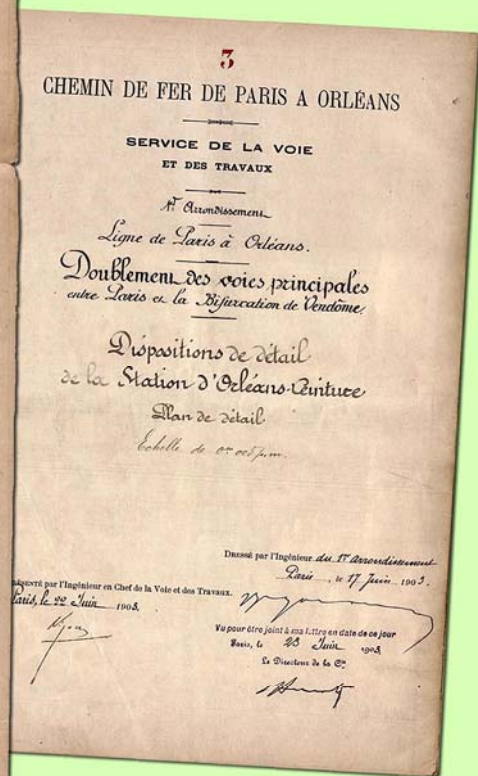 3
CHEMIN DE FER DE PARIS A ORLÉANS
SERVICE DE LA VOIE
ET DES TRAVAUX
1er Arrondissement
Ligne de Paris à Orléans.
Doublement des voies principales
entre Paris et la Bifurcation de Vendôme.
Dispositions de détail
de la Station d'Orléans-Ceinture
Plan de détail
Echelle de
DRESSÉ par l'Ingénieur du 1er arrondissement
Paris, le 17 Juin 1903.
PRÉSENTÉ par l'Ingénieur en Chef de la Voie et des Travaux.
Paris, le 22 Juin 1903.
Vu pour être joint à ma lettre en date de ce jour
Paris, le 23 Juin 1903
Le Directeur de la Cie